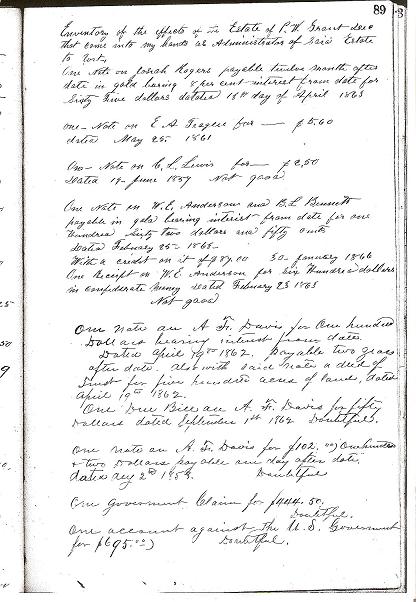 89
Inventory of the effects of the Estate of P. W. Grant dec
that come into my hands as Administrator of Said Estate
to wit,
One Note on Josiah Rogers payable twelve month after
date in gold bearing 8 per cent interest from date for
Sixty Five dollars dated 18th day of April 1863
One Note on E A Teague for — $5.60
dated May 25 1861
One Note on C. L. Lewis for — $2,50
Dated 19 June 1857 Not good
One Note on W. E. Anderson and B. L. Bennett
payable in gold bearing interest from date for one
hundred Sixty two dollars and fifty cents
Dated February 25 1865
With a credit on it of $87.00 30 January 1866
One Receipt on W. E Anderson for Six Hundred dollars
in confederate money dated February 23 1865
Not good
One note on A. Fr. Davis for One hundred
Dollars bearing interest from date.
Dated April 19th 1862. Payable two years
after date. Also with said note a deed of
Trust for five hundred acres of land, dated
April 19th 1862.
One Due Bill on A. Fr. Davis for fifty
Dollars dated September 1st 1862 Doubtful.
One note on A. Fr. Davis for $102.00) One hundred
& two Dollars payable one day after date,
dated 2nd 1859. Doubtful
One Goverment Claim for $444.50.
Doubtful.
One account against The U. S. Goverment
for $695.00) Doubtful.